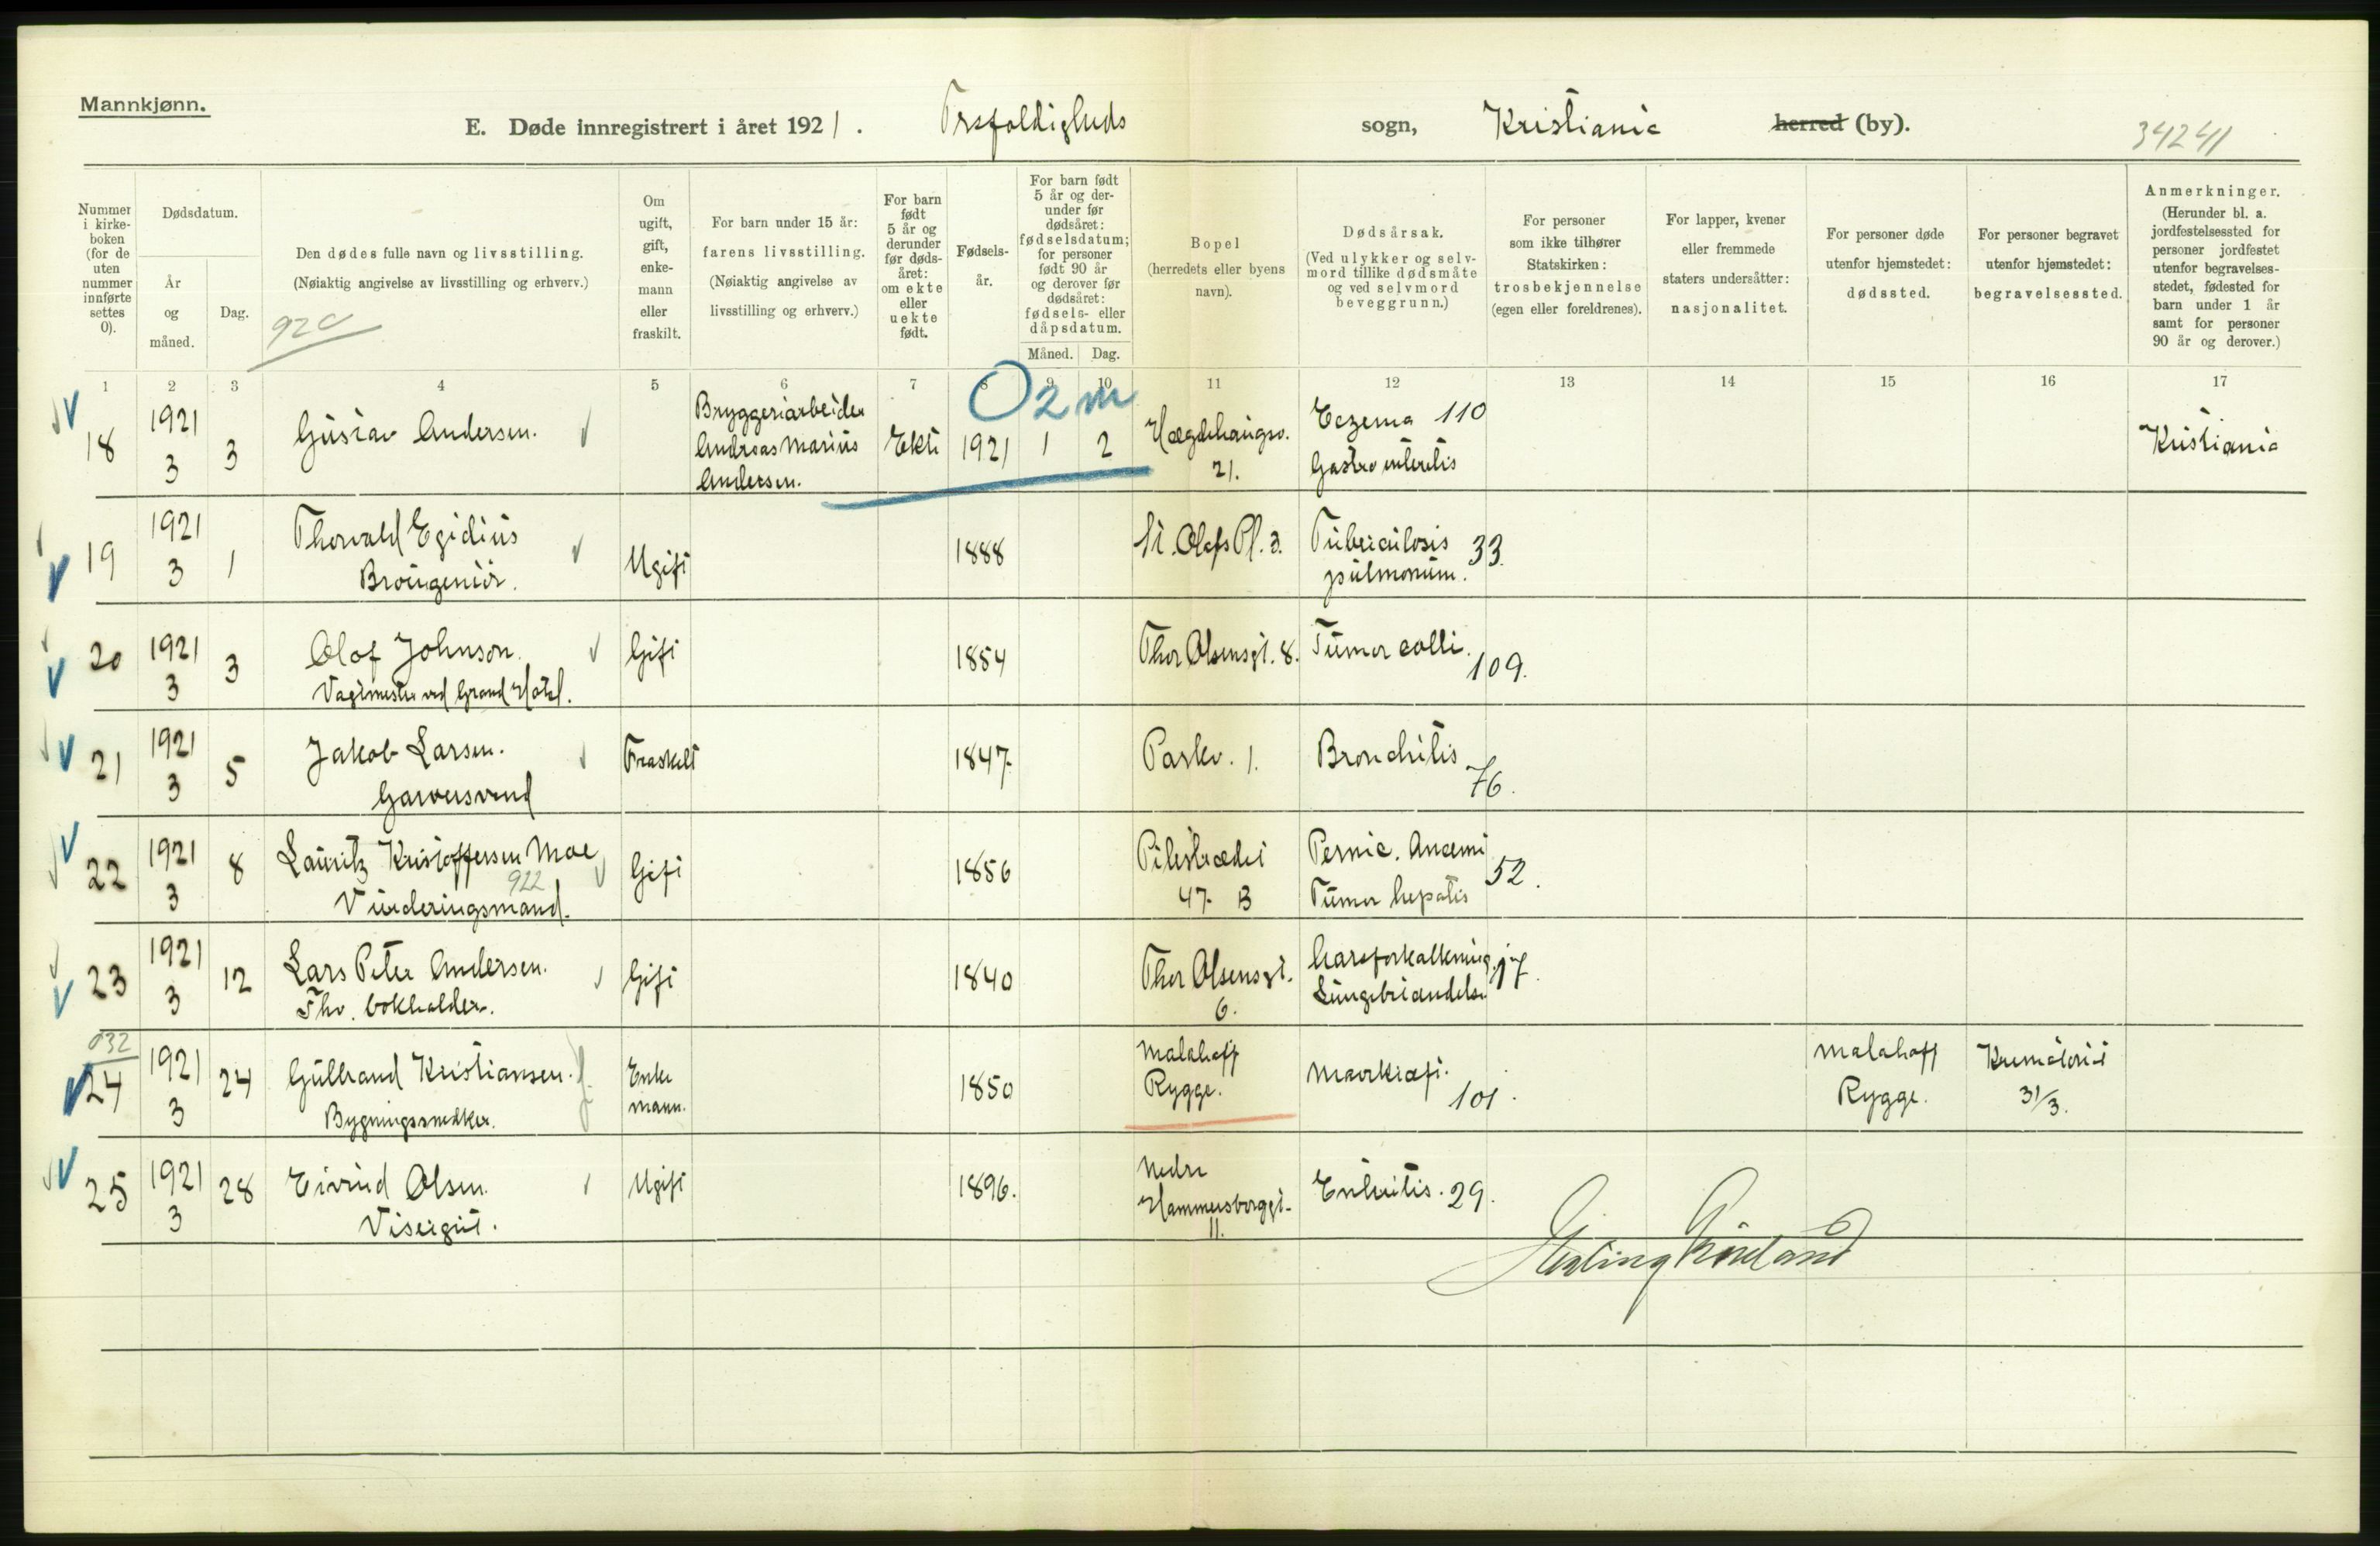 Mannkjønn.
E. Døde innregistrert i året 1921. Trefoldigheds sogn, Kristiania herred (by).
34241
Nummer i kirke-boken (for de uten nummer innførte settes 0).
Dødsdatum.
År og måned.
Dag.
Den dødes fulle navn og livsstilling.
(Nøiaktig angivelse av livsstilling og erhverv.)
920
Om ugift, gift, enke-mann eller fraskilt.
For barn under 15 år: farens livsstilling.
(Nøiaktig angivelse av livsstilling og erhverv.)
For barn født 5 år og derunder før døds-året: om ekte eller uekte født.
Fødsels-år.
For barn født 5 år og der-under før dødsåret: fødselsdatum; for personer født 90 år og derover før dødsåret: fødsels- eller dåpsdatum.
Måned. Dag.
Bopel (herredets eller byens navn).
Dødsårsak.
(Ved ulykker og selv-mord tillike dødsmåte og ved selvmord beveggrunn.)
For personer som ikke tilhører Statskirken: trosbekjennelse (egen eller foreldrenes).
For lapper, kvener eller fremmede staters undersåtter: nasjonalitet.
For personer døde utenfor hjemstedet: dødssted.
For personer begravet utenfor hjemstedet: begravelsessted.
Anmerkninger.
(Herunder bl. a. jordfestelsessted for personer jordfestet utenfor begravelses-stedet, fødested for barn under 1 år samt for personer 90 år og derover.)
1 2 3 4 5 6 7 8 9 10 11 12 13 14 15 16 17
O 2 m
18 1921 3 3 Gustav Andersen. Bryggeriarbeider Andreas Marius Andersen. Ekte 1921 1 2 Hægdehaugsv. 21. Eczema 110 Gastro enteritis Kristiania
19 1921 3 1 Thorvald Egidius Broingeniør. Ugift 1888 St. Olafs Pl. 3. Tuberculosis pulmonum. 33.
20 1921 3 3 Olof Johnson. Vagtmester ved Grand Hotel. Gift 1854 Thor Olsensgt. 8. Tumor colli. 109.
21 1921 3 5 Jakob Larsen. Garversvend Fraskilt 1847. Parkv. 1. Bronchitis 76.
22 1921 3 8 Lauritz Kristoffersen Moe 922 Vurderingsmand. Gift 1856 Pilestrædet 47 B Pernic. Anæmi Tumor hepatis 52.
23 1921 3 12 Lars Peter Andersen. Fhv. bokholder. Gift 1840 Thor Olsensgt. 6. Aareforkalkning. Lungebetændelse 17.
032
24 1921 3 24 Gulbrand Kristiansen. Bygningssnedker. Enkemann. 1850 Malahoff Rygge. Mavekræft. 101. Malahoff Rygge. Krematoriet 31/3.
25 1921 3 28 Eivind Olsen. Visergut. Ugift 1896. Nedre Hammersborggt. 11. Enteritis. 29.